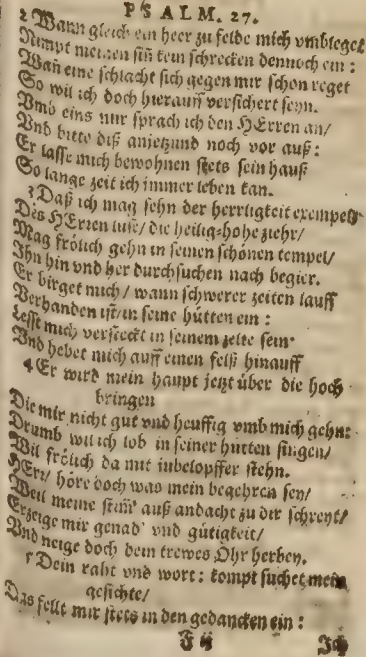 PSALM. 27.
2 Wann gleich ein heer zu felde mich vmbleget
Nimpt meinen siñ kein schrecken dennoch ein:
Wañ eine schlacht sich gegen mir schon reget
So wil ich doch hierauff versichert seyn.
Vmb eins nur sprach ich den HErren an/
Vnd bitte diß anjetzund noch vor auß:
Er lasse mich bewohnen stets sein hauß
So lange zeit ich immer leben kan.
3 Daß ich mag sehn der herrligkeit exempel
Des HErren lust/ die heilig-hohe ziehr/
Mag frölich gehn in seinen schönen tempel/
Ihn hin vnd her durchsuchen nach begier.
Er birget mich/ wann schwerer zeiten lauff
Verhanden ist/ in seine hütten ein:
Lesst mich versteckt in seinem zelte sein
Vnd hebet mich auff einen felß hinauff
4 Er wird mein haupt jetzt über die hoch
bringen
Die mir nicht gut vnd heuffig vmb mich gehn:
Drumb wil ich lob in seiner hutten singen/
Wil frölich da mit iubelopffer stehn.
HErr/ höre doch was mein begehren sey/
Weil meine stim̃ auß andacht zu dir schreyt/
Erzeige mir genad' vnd gütigkeit/
Vnd neige doch dein trewes Ohr herbey.
5 Dein raht vnd wort: kompt suchet mein
gesichte/
Das fellt mir stets in den gedancken ein:
F ij
Ich